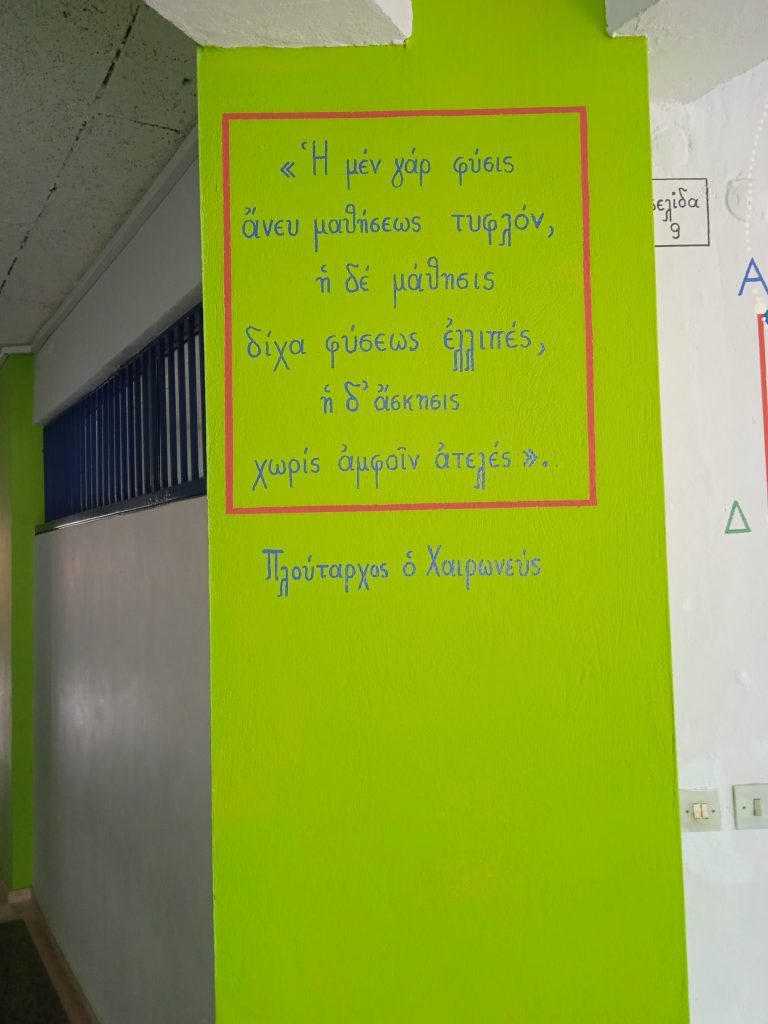 « Ἡ μέν γάρ φύσις
ἄνευ μαθήσεως τυφλόν,
ἡ δέ μάθησις
δίχα φύσεως ἐλλιπές,
ἡ δ᾽ ἄσκησις
χωρίς ἀμφοῖν ἀτελές ».
Πλούταρχος ὁ Χαιρωνεύς
σελίδα
9
Α
Δ